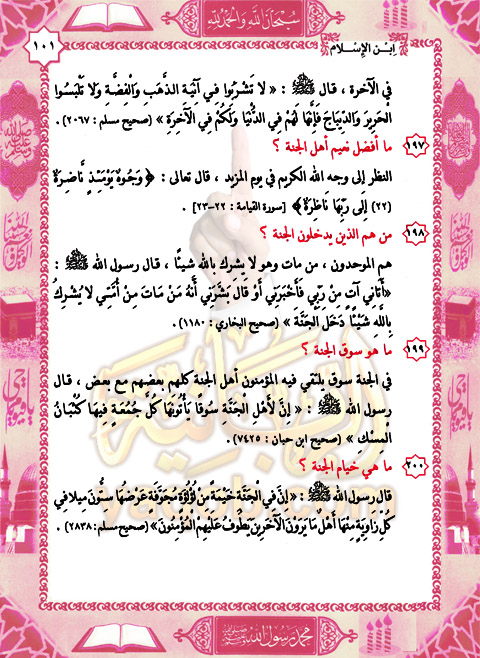 سبحان الله والحمد لله
١٠١
ابن الإسلام
في الآخرة ، قال ﷺ : « لَا تَشْرَبُوا فِي آنِيَةِ الذَّهَبِ وَالْفِضَّةِ وَلَا تَلْبَسُوا
الْحَرِيرَ وَالدِّيبَاجَ فَإِنَّهَا لَهُمْ فِي الدُّنْيَا وَلَكُمْ فِي الْآخِرَةِ » (صحيح مسلم : ٢٠٦٧) .
١٩٧ ما أفضل نعيم أهل الجنة ؟
النظر إلى وجه الله الكريم في يوم المزيد ، قال تعالى : ﴿ وُجُوهٌ يَوْمَئِذٍ نَّاضِرَةٌ
(٢٢) إِلَىٰ رَبِّهَا نَاظِرَةٌ ﴾ [سورة القيامة : ٢٢-٢٣] .
١٩٨ من هم الذين يدخلون الجنة ؟
هم الموحدون ، من مات وهو لا يشرك بالله شيئًا ، قال رسول الله ﷺ :
«أَتَانِي آتٍ مِنْ رَبِّي فَأَخْبَرَنِي أَوْ قَالَ بَشَّرَنِي أَنَّهُ مَنْ مَاتَ مِنْ أُمَّتِي لَا يُشْرِكُ
بِاللَّهِ شَيْئًا دَخَلَ الْجَنَّةَ » (صحيح البخاري : ١١٨٠) .
١٩٩ ما هو سوق الجنة ؟
في الجنة سوق يلتقي فيه المؤمنون أهل الجنة كلهم بعضهم مع بعض ، قال
رسول الله ﷺ : « إِنَّ لِأَهْلِ الْجَنَّةِ سُوقًا يَأْتُونَهَا كُلَّ جُمُعَةٍ فِيهَا كُثْبَانُ
الْمِسْكِ » (صحيح ابن حبان : ٧٤٢٥) .
٢٠٠ ما هي خيام الجنة ؟
قال رسول الله ﷺ : «إِنَّ فِي الْجَنَّةِ خَيْمَةً مِنْ لُؤْلُؤَةٍ مُجَوَّفَةٍ عَرْضُهَا سِتُّونَ مِيلًا فِي
كُلِّ زَاوِيَةٍ مِنْهَا أَهْلٌ مَا يَرَوْنَ الْآخَرِينَ يَطُوفُ عَلَيْهِمُ الْمُؤْمِنُونَ» (صحيح مسلم: ٢٨٣٨) .
محمد رسول الله ﷺ